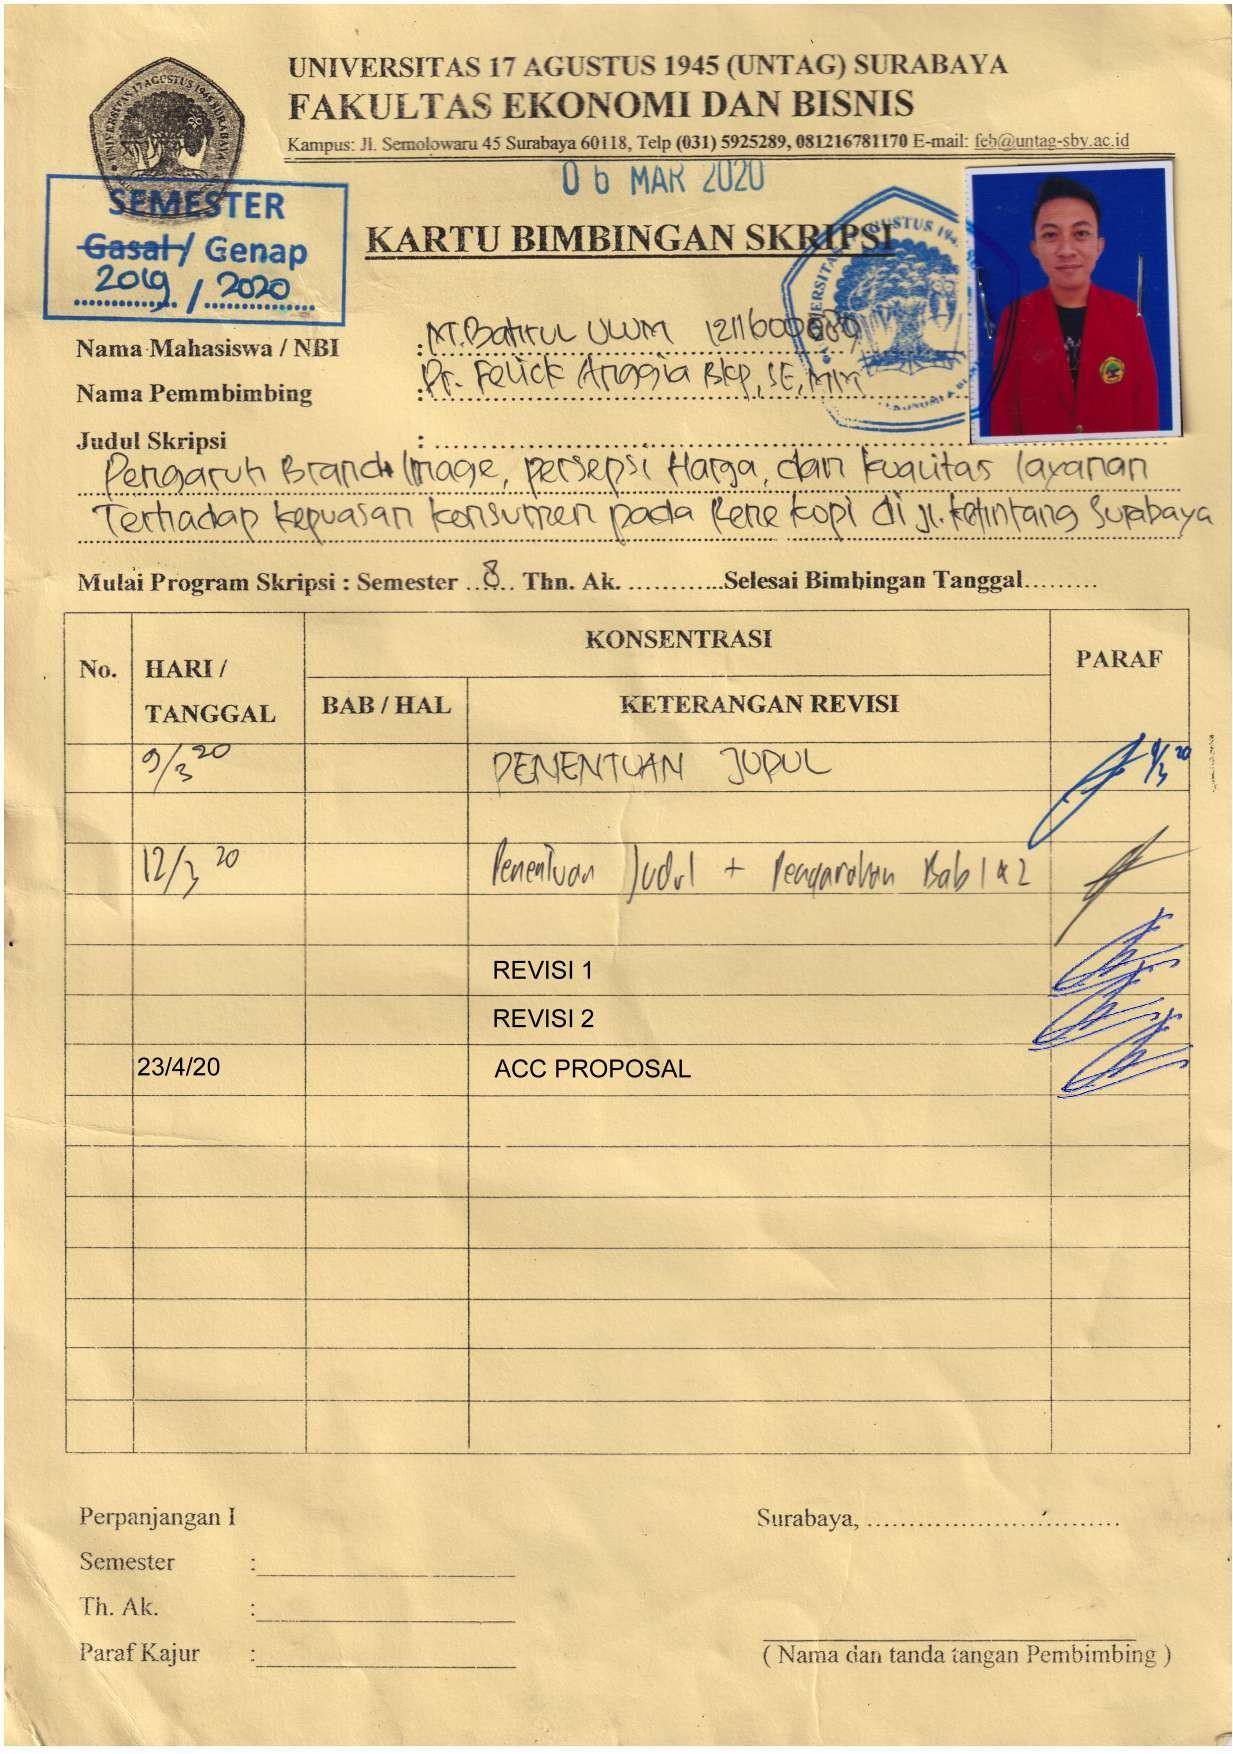 UNIVERSITAS 17 AGUSTUS 1945 (UNTAG) SURABAYA
FAKULTAS EKONOMI DAN BISNIS
Kampus: Jl. Semolowaru 45 Surabaya 60118, Telp (031) 5925289, 081216781170 E-mail: feb@untag-sby.ac.id
06 MAR 2020
SEMESTER
Gasal / Genap
2019 / 2020
KARTU BIMBINGAN SKRIPSI
Nama Mahasiswa / NBI : M. Batirul Ulum
Nama Pemmbimbing : Dr. Felick Anggia Bkp, SE, MM
Judul Skripsi :
Pengaruh Brand Image, persepsi Harga, dan kualitas layanan
Terhadap kepuasan konsumen pada Rene kopi di jl. ketintang Surabaya
Mulai Program Skripsi : Semester ..8.. Thn. Ak. ............Selesai Bimbingan Tanggal.........
No. HARI / TANGGAL KONSENTRASI PARAF
BAB / HAL KETERANGAN REVISI
9/3 20 PENENTUAN JUDUL 9/3 20
12/3 20 Penentuan Judul + Pengarahan Bab 1 & 2
REVISI 1
REVISI 2
23/4/20 ACC PROPOSAL
Perpanjangan I
Surabaya, ..............................
Semester :
Th. Ak. :
Paraf Kajur :
( Nama dan tanda tangan Pembimbing )